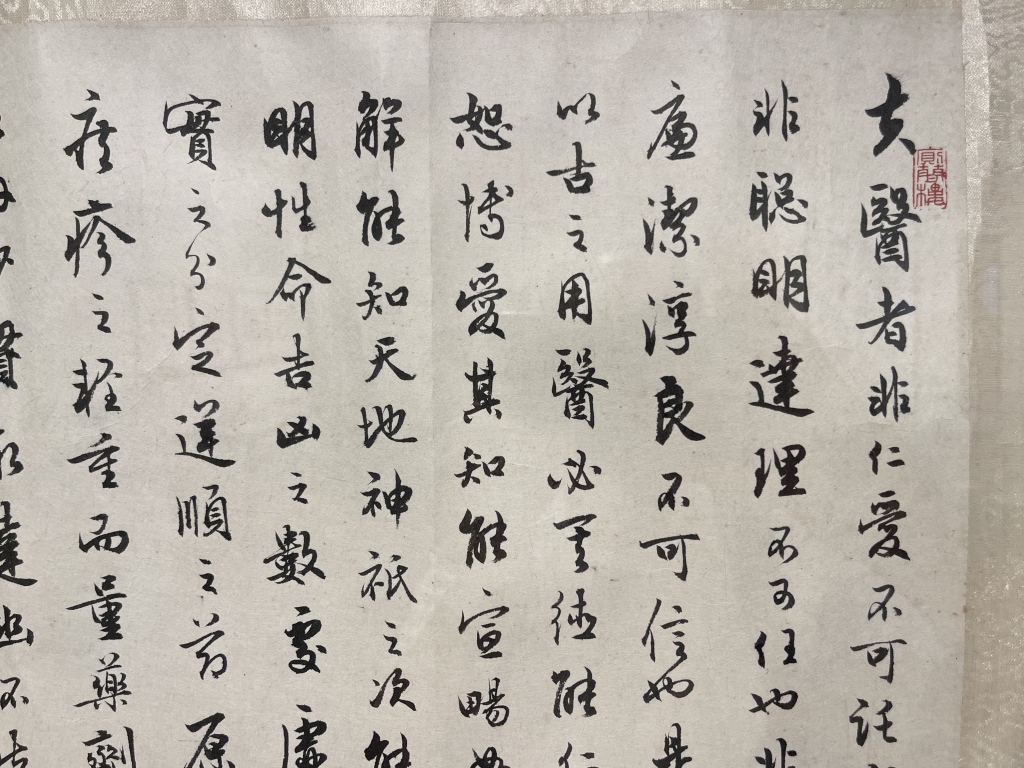 夫醫者非仁愛不可託
非聰明達理不可任也非
廉潔淳良不可信也是
以古之用醫必其德能仁
恕博愛其知能宣暢
解能知天地神祇之次能
明性命吉凶之數處虛
實之分定逆順之節原
疾疹之輕重而量藥劑
達幽不